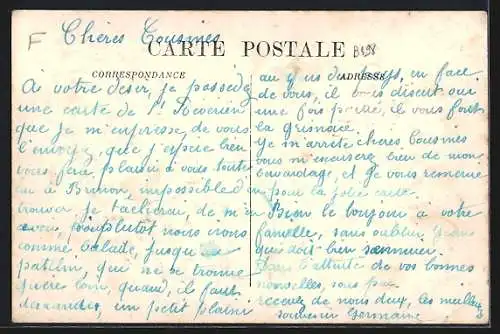 F
Chères Cousines
CARTE POSTALE
B198
CORRESPONDANCE
ADRESSE
A votre désir, je possède
une carte de St Révérien
que je m'empresse de vous
l'envoyer, que j'espère bien
vous fera plaisir à vous toutes
car à Brinon impossible d'en
trouver je tâcherai, de m'en
avoir, plutôt nous irons
comme balade, jusqu'au
patelin, qui ne se trouve
guère loin, quand, il faut
descendre, un petit plaisir
au gens du pays, en face
de vous, il vous disent oui
une fois partie, il vous font
la Grimace.
Je m'arrête chères Cousines
vous m'excuserez bien de mon
bavardage, et Je vous remercie
pour la jolie carte
Bien le bonjour à votre
famille, sans oublier
qui doit bien s'ennuyer
Dans l'attente de vos bonnes
nouvelles,
recevez de nous deux, les meilleurs
souvenir Germaine